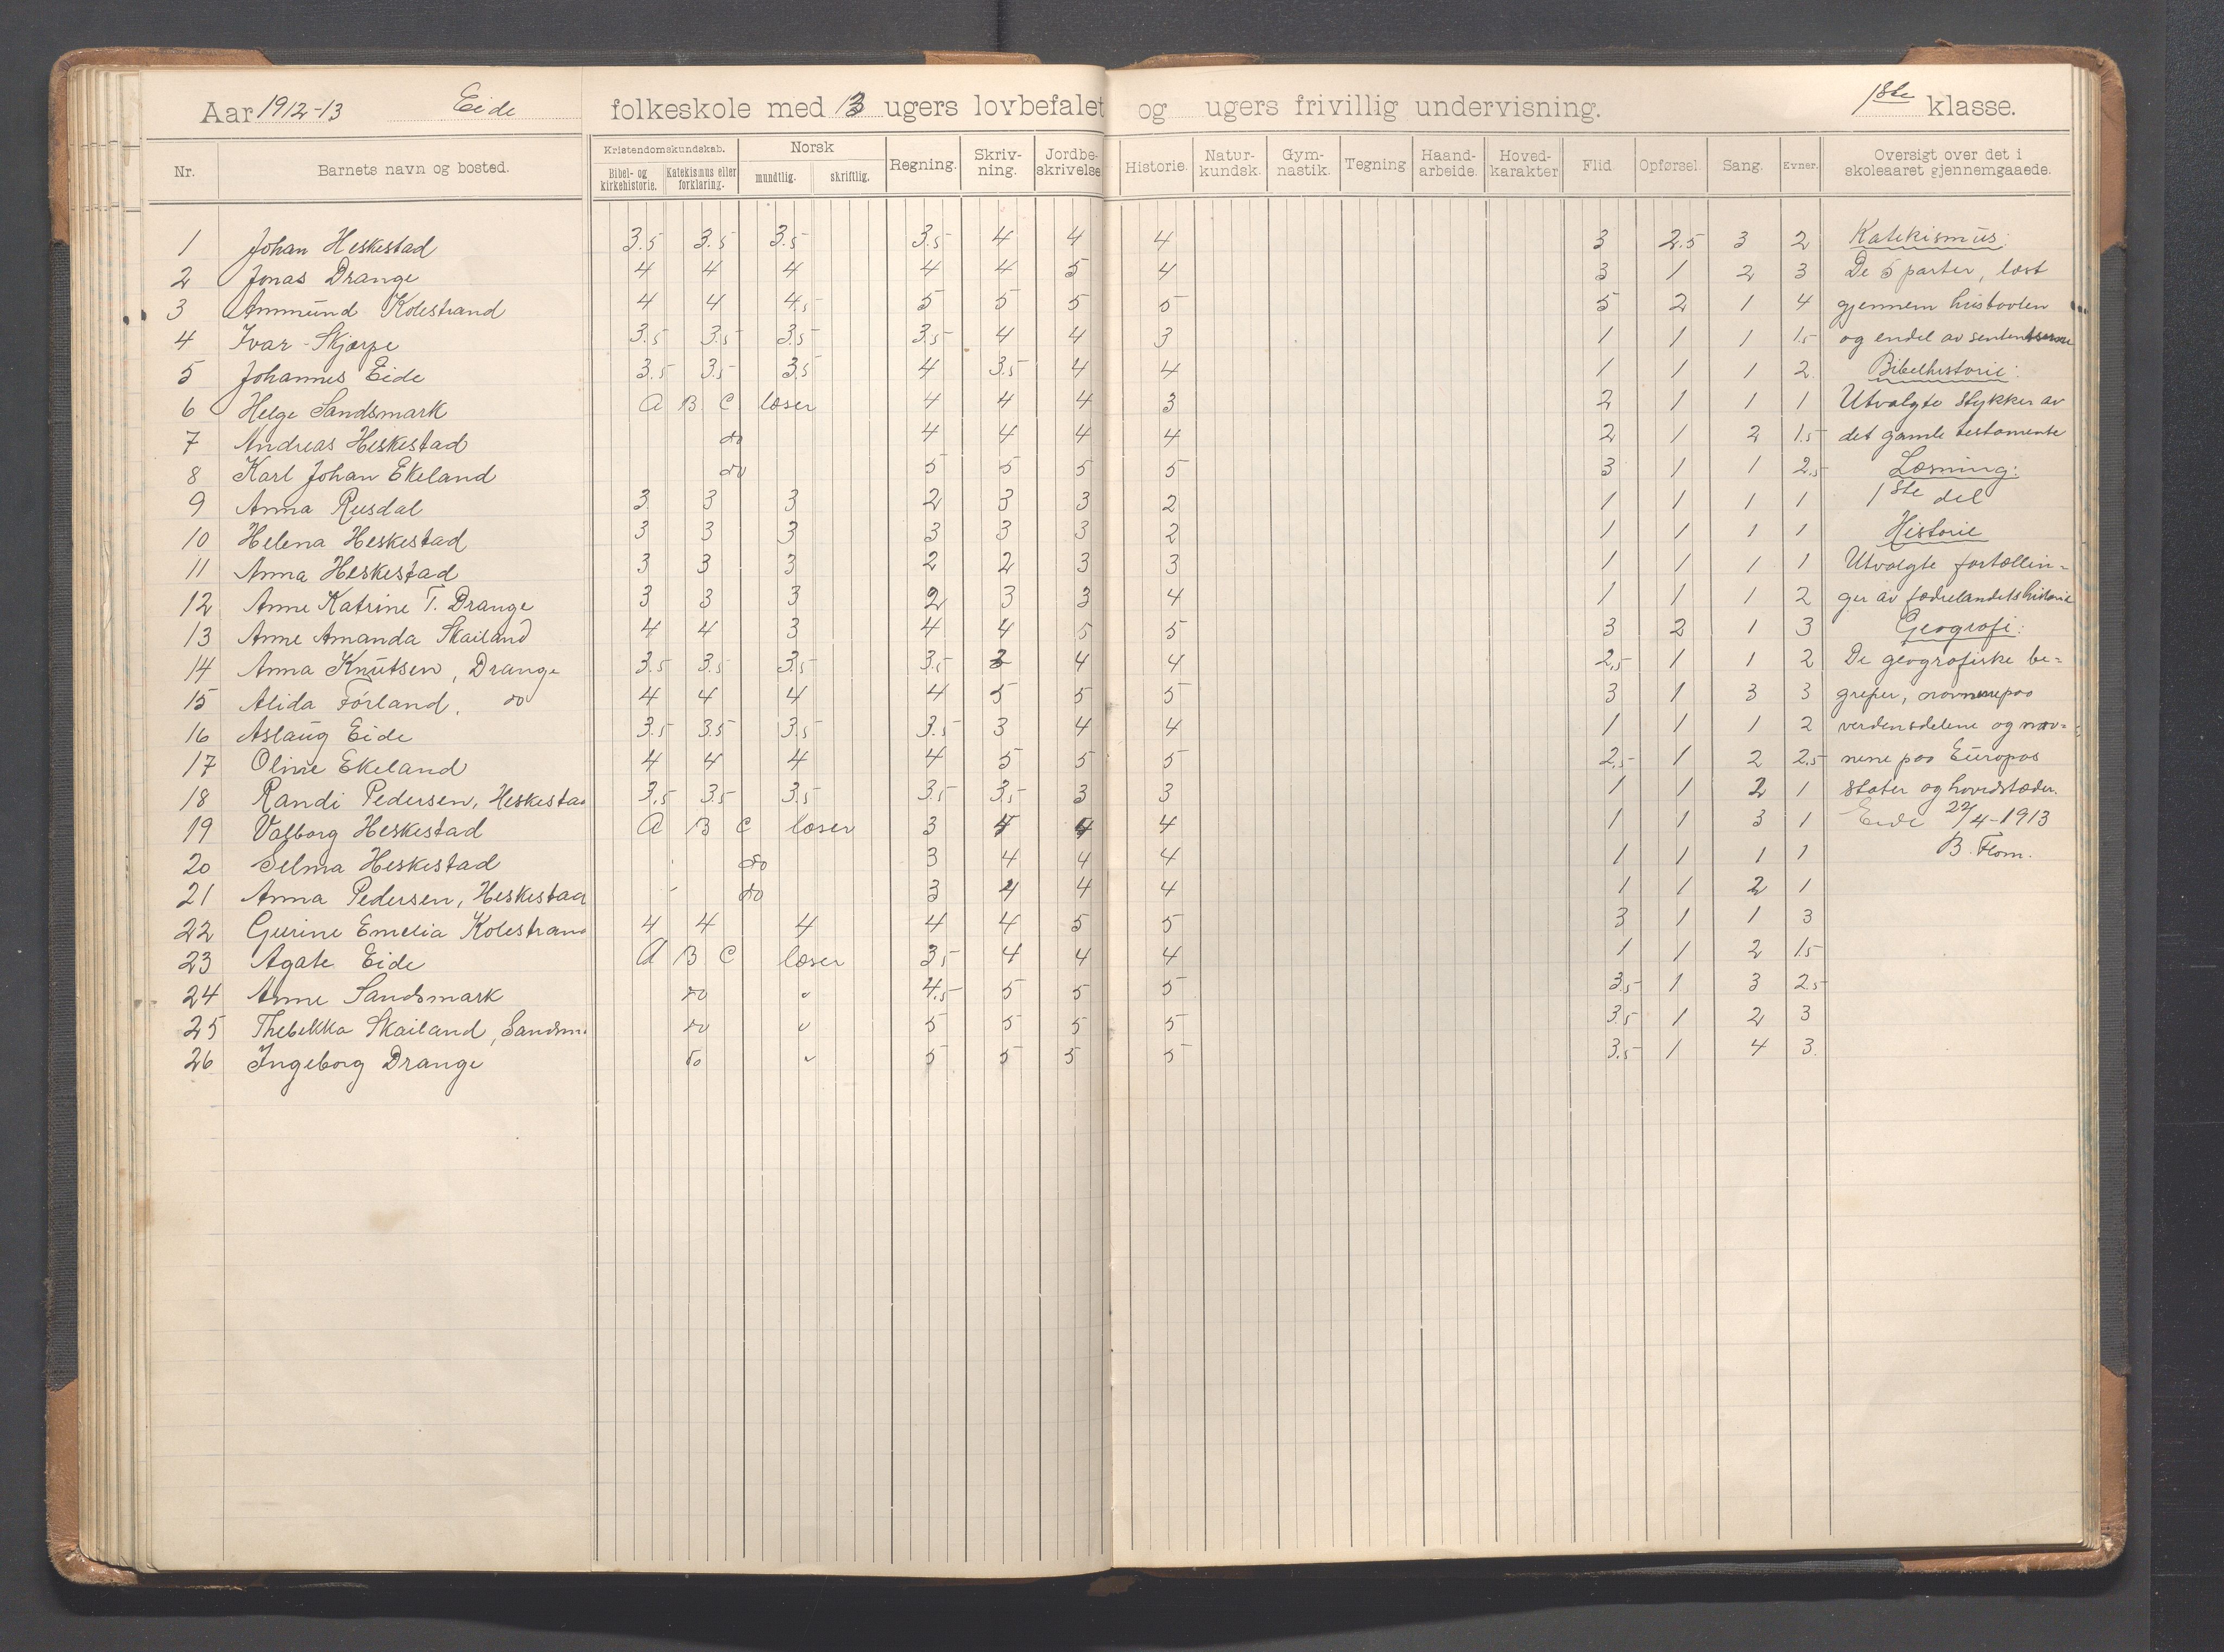 Aar 1912-13 Eide folkeskole med 13 ugers lovbefalet og ugers frivillig undervisning. 1ste klasse.
Nr. Barnets navn og bosted. Kristendomskundskab. Bibel- og kirkehistorie. Katekismus eller forklaring. Norsk mundtlig. skriftlig. Regning. Skriv-ning. Jordbe-skrivelse Historie. Natur-kundsk. Gym-nastik. Tegning Haand-arbeide. Hoved-karakter Flid Opførsel Sang. Evner. Oversigt over det i skoleaaret gjennemgaaede.
1 Johan Heskestad 3.5 3.5 3.5 3.5 4 4 4 3 2.5 3 2 Katekismus:
2 Jonas Drange 4 4 4 4 4 5 4 3 1 2 3 De 5 parter, læst
3 Ammund Kolestrand 4 4 4.5 5 5 5 5 5 2 1 4 gjennem hustavlen
4 Ivar Skjærpe 3.5 3.5 3.5 3.5 4 4 3 1 1 1 1.5 og endel av sentenserne
5 Johannes Eide 3.5 3.5 3.5 4 3.5 4 4 1 1 1 2 Bibelhistorie:
6 Helge Sandsmark A B C læser 4 4 4 3 2 1 1 1 Utvalgte stykker av
7 Andreas Heskestad do 4 4 4 4 2 1 2 1.5 det gamle testamente
8 Karl Johan Ekeland do 5 5 5 5 3 1 1 2.5 Læsning:
9 Anna Rusdal 3 3 3 2 3 3 2 1 1 1 1 1ste del
10 Helena Heskestad 3 3 3 3 3 3 2 1 1 1 1 Historie
11 Anna Heskestad 3 3 3 2 2 3 3 1 1 1 1 Utvalgte fortællin-
12 Anne Katrine T. Drange 3 3 3 2 3 3 4 1 1 1 2 ger av fædrelandets historie
13 Anne Amanda Skailand 4 4 3 4 4 5 5 3 2 1 3 Geografi:
14 Anna Knutsen, Drange 3.5 3.5 3.5 3.5 3 4 4 2.5 1 1 2 De geografiske be-
15 Alida Førland, do 4 4 4 4 5 5 5 3 1 3 3 greper, navnene paa
16 Aslaug Eide 3.5 3.5 3.5 3.5 3 4 4 1 1 1 2 verdensdelene og nav-
17 Oline Ekeland 4 4 4 4 5 5 5 2.5 1 2 2.5 nene paa Europas
18 Randi Pedersen, Heskestad 3.5 3.5 3.5 3.5 3.5 3 3 1 1 2 1 stater og hovedstæder.
19 Valborg Heskestad A B C læser 3 4 4 4 1 1 3 1 Eide 22/4-1913
20 Selma Heskestad do 3 4 4 4 1 1 1 1 B. Flom.
21 Anna Pedersen, Heskestad do 3 4 4 4 1 1 2 1
22 Gurine Emelia Kolestrand 4 4 4 4 4 5 5 3 1 1 3
23 Agate Eide A B C læser 3.5 4 4 4 1 1 2 1.5
24 Anne Sandsmark do " 4.5 5 5 5 3.5 1 3 2.5
25 Thebekka Skailand, Sandsm. do " 5 5 5 5 3.5 1 2 3
26 Ingeborg Drange do " 5 5 5 5 3.5 1 4 3.